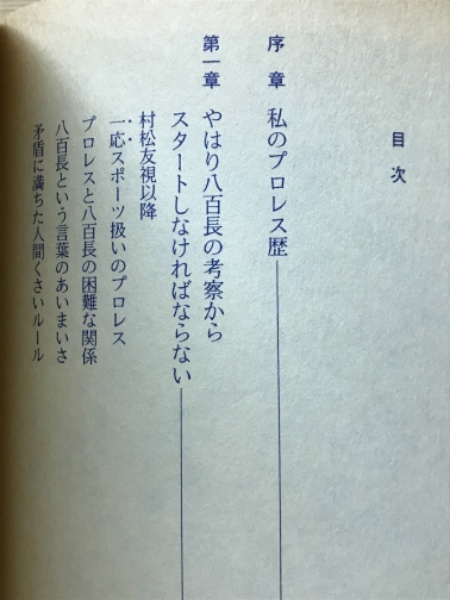 目次
序章 私のプロレス歴
第一章 やはり八百長の考察から
スタートしなければならない
村松友視以降
一応スポーツ扱いのプロレス
プロレスと八百長の困難な関係
八百長という言葉のあいまいさ
矛盾に満ちた人間くさいルール